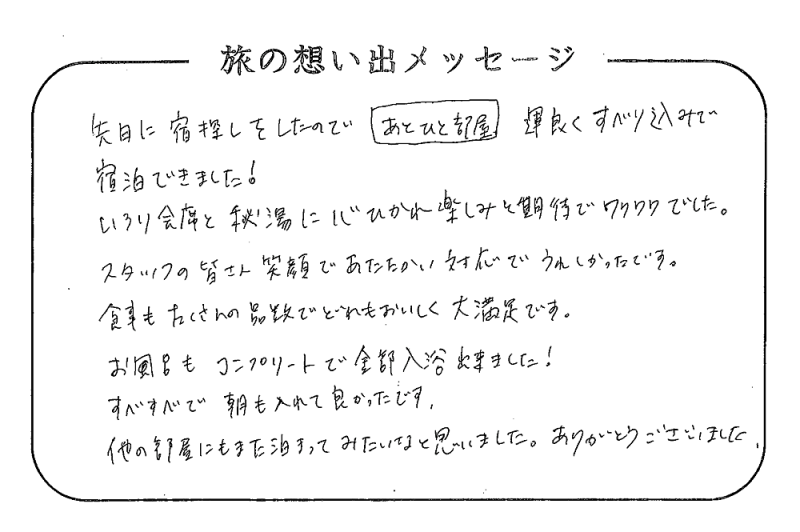 旅の想い出メッセージ
先日に宿探しをしたので あとひと部屋 運良くすべり込みで
宿泊できました！
いろり会席と秘湯に心ひかれ楽しみと期待でワクワクでした。
スタッフの皆さん笑顔であたたかい対応でうれしかったです。
食事もたくさんの品数でどれもおいしく大満足です。
お風呂もコンプリートで全部入浴出来ました！
すべすべで朝も入れて良かったです。
他の部屋にもまた泊まってみたいなと思いました。ありがとうございました。